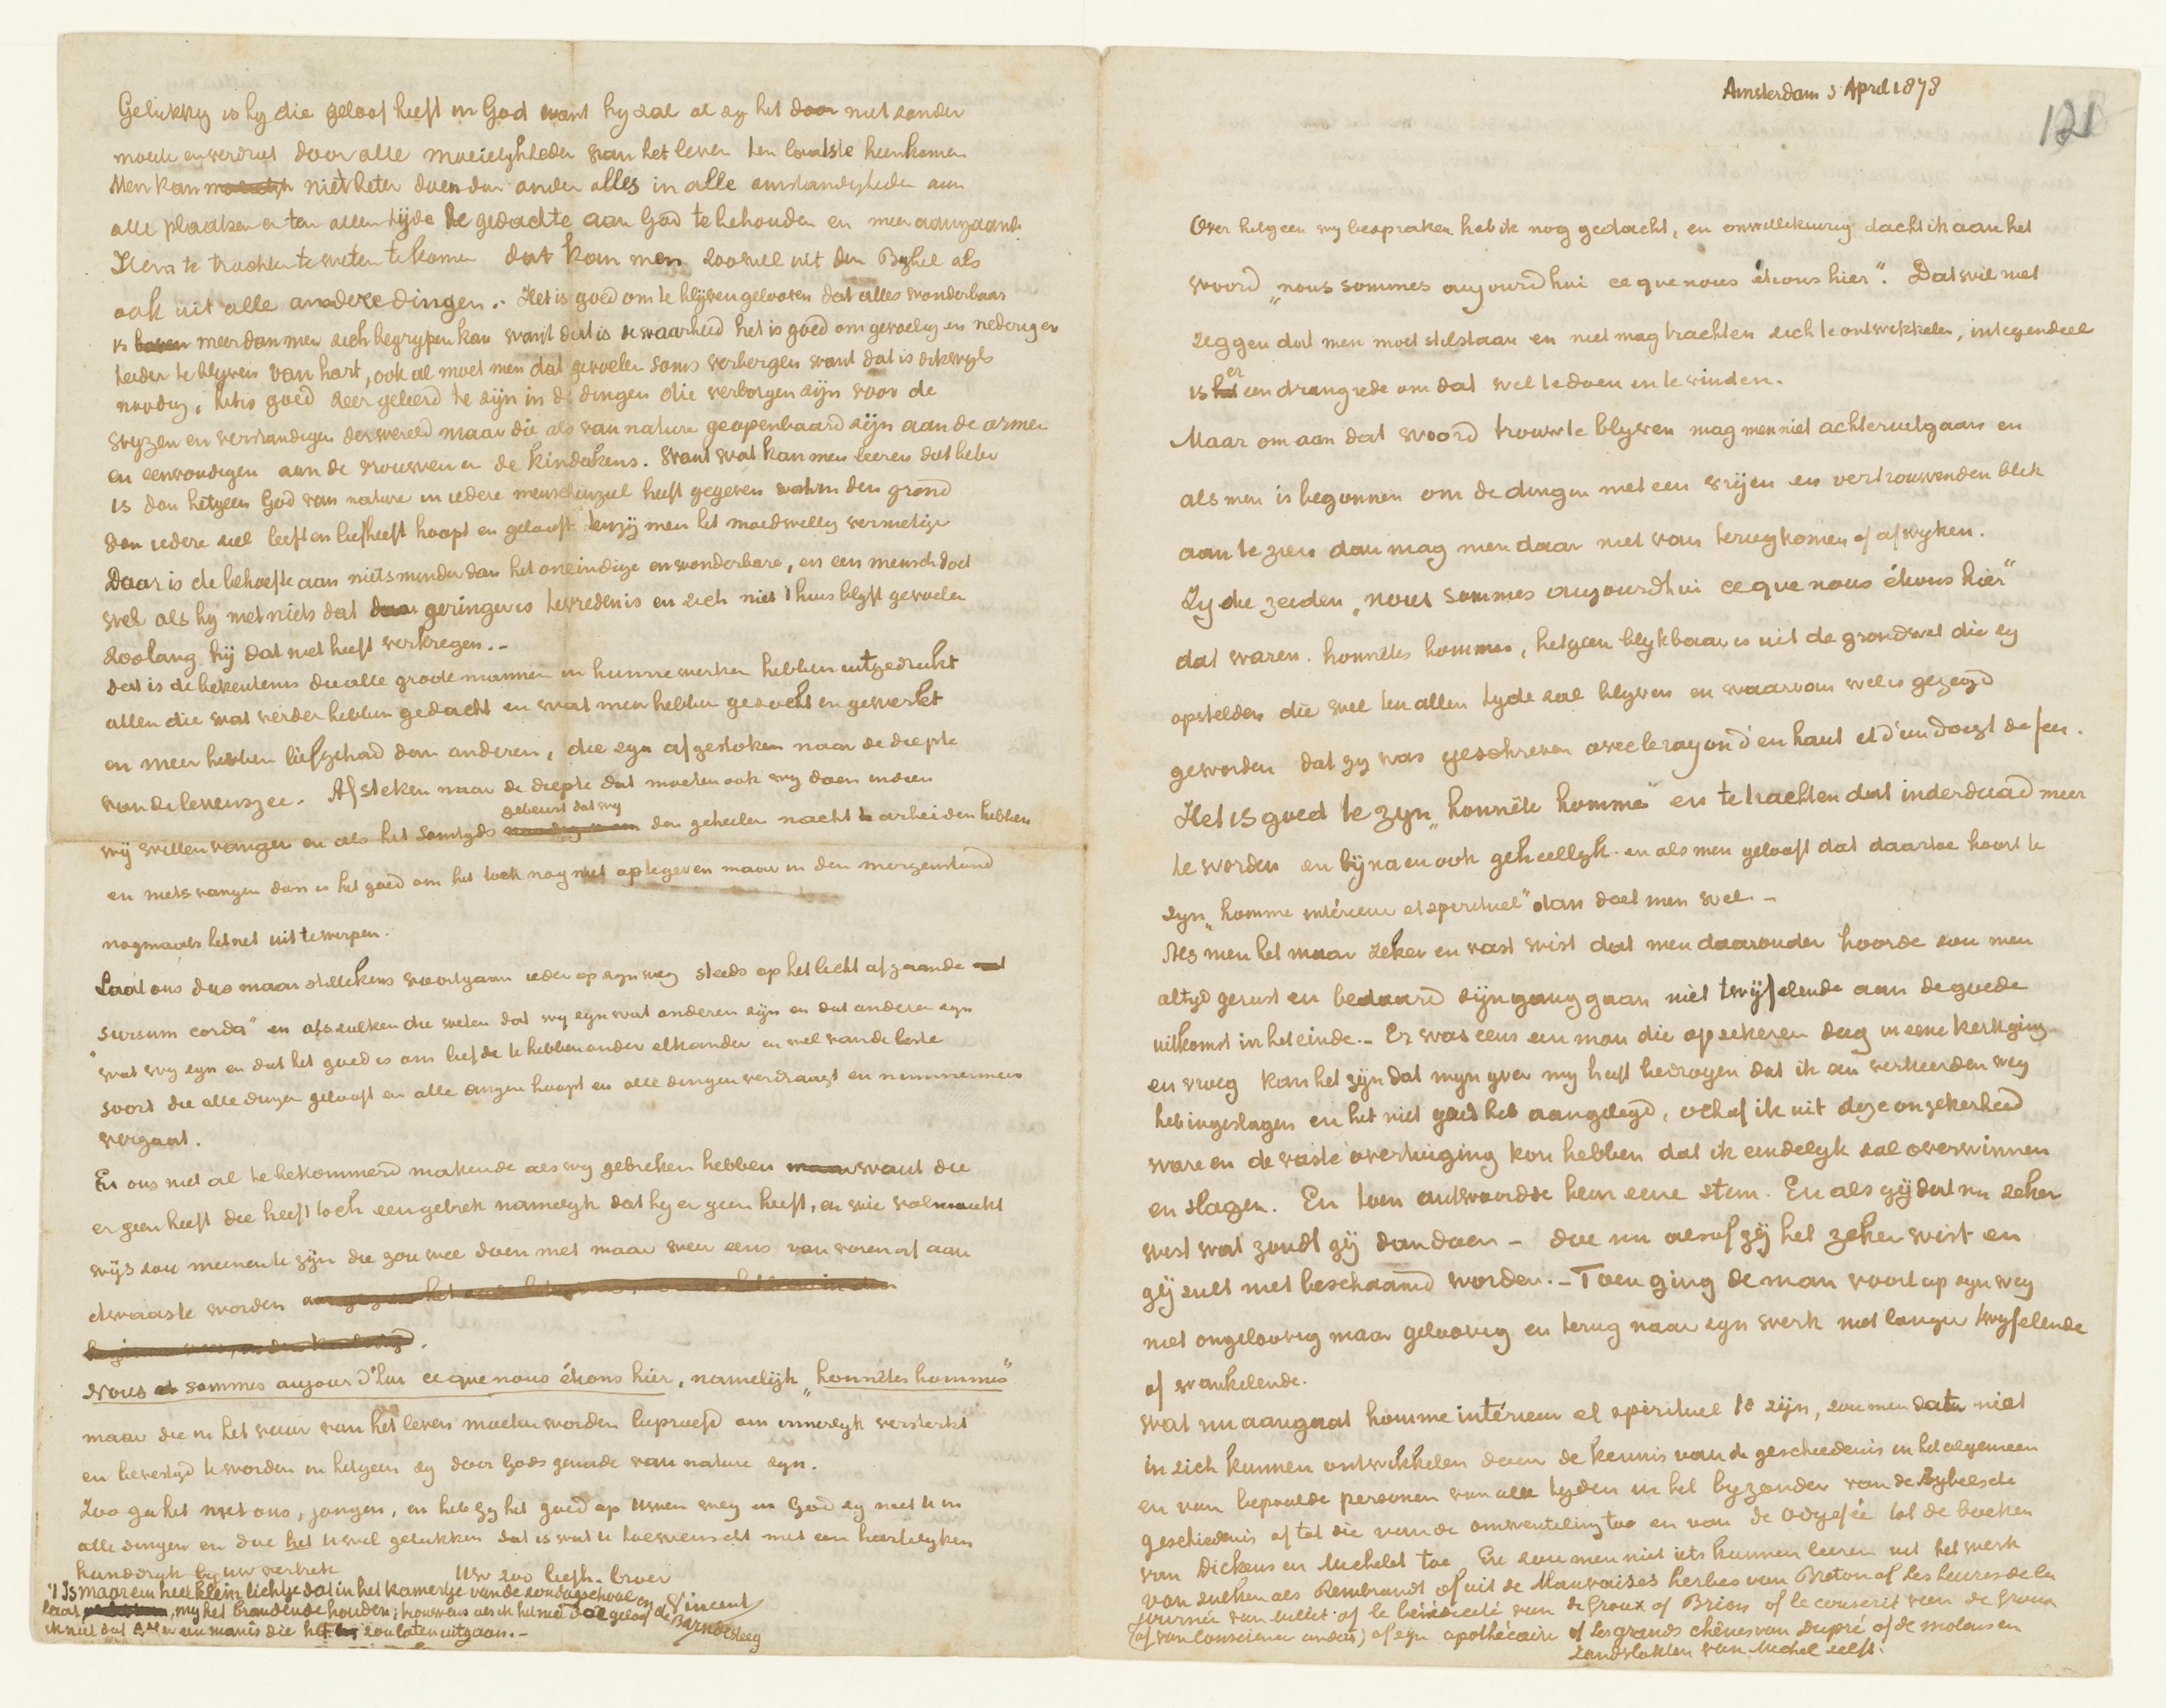 Gelukkig is hij die geloof heeft in God want hij zal al zij het door niet zonder
moeite en verdriet door alle moeielijkheden van het leven ten laatste heenkomen
Men kan niet beter doen dan onder alles in alle omstandigheden aan
alle plaatsen en ten allen tijde de gedachte aan God te behouden en meer aangaande
Hem te trachten te weten te komen dat kan men zoowel uit den Bijbel als
ook uit alle andere dingen.- Het is goed om te blijven gelooven dat alles wonderbaar
is boven meer dan men zich begrijpen kan want dit is de waarheid het is goed om gevoelig en nederig en
teeder te blijven van hart, ook al moet men dat gevoelen soms verbergen want dat is dikwijls
noodig, het is goed zeer geleerd te zijn in de dingen die verborgen zijn voor de
wijzen en verstandigen der wereld maar die als van nature geopenbaard zijn aan de armen
en eenvoudigen aan de vrouwen en de kinderkens. Want wat kan men leeren dat beter
is dan hetgeen God van nature in iedere menschenziel heeft gegeven wat in den grond
van iedere ziel leeft en liefheeft hoopt en gelooft tenzij men het moedwillig vernietige
Daar is de behoefte aan niets minder dan het oneindige en wonderbare, en een mensch doet
wel als hij met niets dat daar geringer is tevreden is en zich niet thuis blijft gevoelen
zoolang hij dat niet heeft verkregen.-
dat is de bekentenis die alle groote mannen in hunne werken hebben uitgedrukt
allen die wat verder hebben gedacht en wat meer hebben gezocht en gewerkt
en meer hebben liefgehad dan anderen, die zijn afgestoken naar de diepte
van de levenszee. Afsteken naar de diepte dat moeten ook wij doen indien
wij willen vangen en als het somtijds gebeurt dat wij den geheelen nacht arbeiden hebben
en niets vangen dan is het goed om het toch nog niet op te geven maar in den morgenstond
nogmaals het net uit te werpen.
Laat ons dus maar stillekens voortgaan ieder op zijn weg steeds op het licht afgaande
"sursum corda" en als zulken die weten dat wij zijn wat anderen zijn en dat anderen zijn
wat wij zijn en dat het goed is om liefde te hebben onder elkander en wel van de beste
soort die alle dingen gelooft en alle dingen hoopt en alle dingen verdraagt en nimmermeer
vergaat.
En ons niet al te bekommerd makende als wij gebreken hebben maar want die
er geen heeft die heeft toch een gebrek namelijk dat hij er geen heeft, en wie volmaakt
wijs zou meenen te zijn die zou wee doen met maar weer eens van voren af aan
dwaaste worden
.
Nous sommes aujourd'hui ce que nous étions hier, namelijk "honnêtes hommes"
maar die in het vuur van het leven moeten worden beproefd om innerlijk versterkt
en bevestigd te worden in hetgeen zij door Gods genade van nature zijn.
Zoo ga het met ons, jongen, en heb gij het goed op uwen weg en God zij met u in
alle dingen en doe het u wel gelukken dat is wat u toewenscht met een hartelijken
handdruk bij uw vertrek Uw zoo liefh. broer
Vincent
't Is maar een heel klein lichtje dat in het kamertje van de zondagschool in de Barndesteeg
laat mij het brandende houden; trouwens als ik het niet doe geloof
ik niet dat Adler een man is die het zou laten uitgaan.-
Amsterdam 3 April 1878
121
Over hetgeen wij bespraken heb ik nog gedacht, en onwillekeurig dacht ik aan het
woord „nous sommes aujourd'hui ce que nous étions hier". Dat wil niet
zeggen dat men moet stilstaan en niet mag trachten zich te ontwikkelen, integendeel
is er een drangrede om dat wel te doen en te vinden.
Maar om aan dat woord trouw te blijven mag men niet achteruitgaan en
als men is begonnen om de dingen met een vrijen en vertrouwenden blik
aan te zien dan mag men daar niet van terugkomen of afwijken.
Zij die zeiden „nous sommes aujourd'hui ce que nous étions hier"
dat waren honnêtes hommes, hetgeen blijkbaar is uit de grondwet die zij
opstelden die wel ten allen tijde zal blijven en waarvan wel is gezegd
geworden dat zij was geschreven avec le rayon d'en haut et d'un doigt de feu.
Het is goed te zijn „honnête homme" en te trachten dat inderdaad meer
te worden en bijna en ook geheellijk en als men gelooft dat daartoe hoort te
zijn „homme intérieur et spirituel" dan doet men wel.-
Als men het maar zeker en vast wist dat men daaronder hoorde zou men
altijd gerust en bedaard zijn gang gaan niet twijfelende aan de goede
uitkomst in het einde.- Er was eens een man die op zekeren dag in eene kerk ging
en vroeg kan het zijn dat mijn ijver mij heeft bedrogen dat ik een verkeerden weg
heb ingeslagen en het niet goed heb aangelegd, och of ik uit deze onzekerheid
ware en de vaste overtuiging kon hebben dat ik eindelijk zal overwinnen
en slagen. En toen antwoordde hem eene stem. En als gij dat nu zeker
wist wat zoudt gij dan doen - doe nu alsof gij het zeker wist en
gij zult niet beschaamd worden.- Toen ging de man voort op zijn weg
niet ongeloovig maar geloovig en terug naar zijn werk niet langer twijfelende
of wankelende.
Wat nu aangaat homme intérieur et spirituel te zijn, zou men dat niet
in zich kunnen ontwikkelen door de kennis van de geschiedenis in het algemeen
en van bepaalde personen van alle tijden in het bijzonder van de Bijbelsche
geschiedenis af tot die van de omwenteling toe en van de odyssée tot de boeken
van Dickens en Michelet toe. En zou men niet iets kunnen leeren uit het werk
van zulken als Rembrandt of uit de Mauvaises herbes van Breton of Les heures de la
journée van Millet of le bénédicité van de Groux of Brion of le conscrit van de Groux
(of van Conscience anders) of zijn apothécaire of Les grands chênes van Dupré of de molens en
zandvlakten van Michel zelfs.